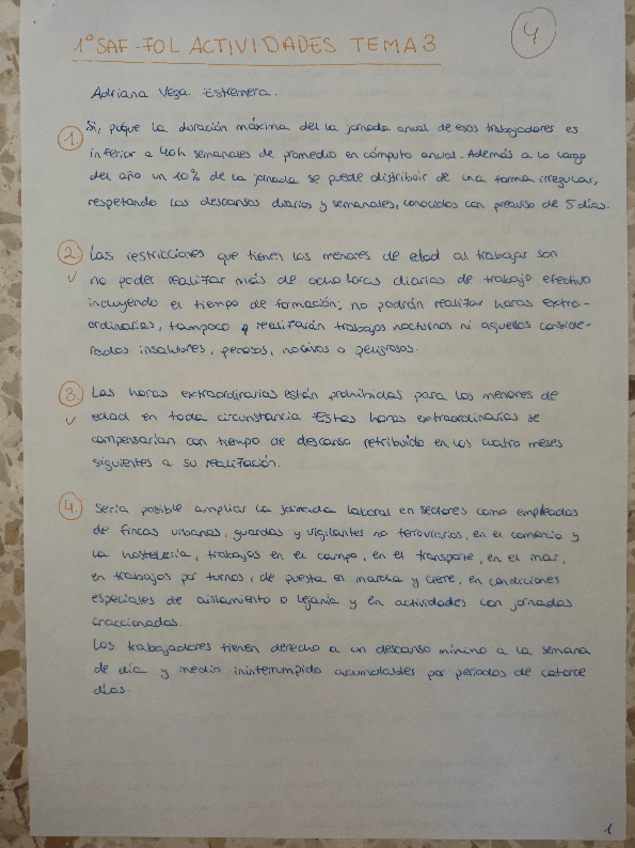 1º SAF - FOL ACTIVIDADES TEMA 3
4
Adriana Vega Estremera.
1. Si, puque la duración máxima del la jornada anual de esos trabajadores es
inferior a 40h semanales de promedio en cómputo anual. Además a lo largo
del año un 10% de la jornada se puede distribuir de una forma irregular,
respetando los descansos diarios y semanales, conocidos con preaviso de 5 días.
2. Las restricciones que tienen los menores de edad al trabajar son
✓ no poder realizar más de ocho horas diarias de trabajo efectivo
incluyendo el tiempo de formación; no podrán realizar horas extra-
ordinarias, tampoco realizarán trabajos nocturnos ni aquellos conside-
rados insalubres, penosos, nocivos o peligrosos.
3. Las horas extraordinarias están prohibidas para los menores de
✓ edad en toda circunstancia. Estas horas extraordinarias se
compensarían con tiempo de descanso retribuido en los cuatro meses
siguientes a su realización.
4. Sería posible ampliar la jornada laboral en sectores como empleados
de fincas urbanas, guardas y vigilantes no ferroviarios, en el comercio y
la hostelería, trabajos en el campo, en el transporte, en el mar,
en trabajos por turnos, de puesta en marcha y cierre, en condiciones
especiales de aislamiento o lejanía y en actividades con jornadas
fraccionadas.
Los trabajadores tienen derecho a un descanso mínimo a la semana
de día y medio ininterrumpido acumulables por periodos de catorce
días.
1